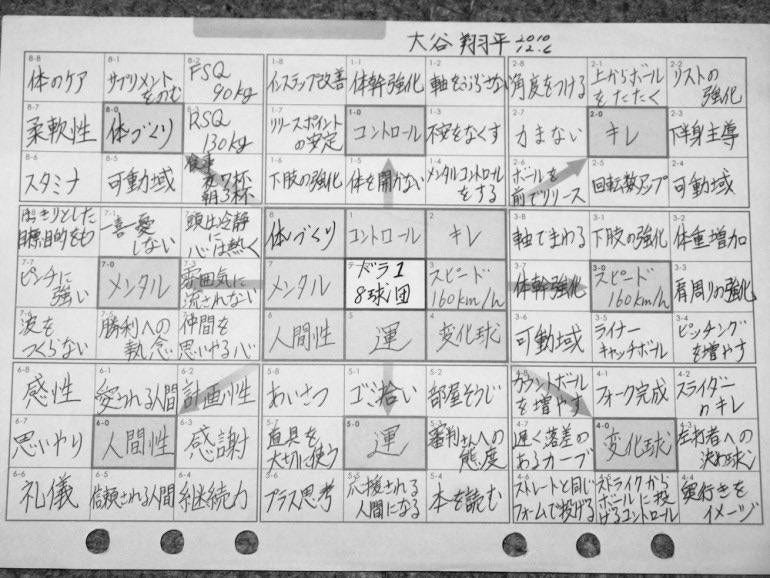 大谷 翔平 2010 12.6
8-8 8-1 8-2 1-8 1-1 1-2 2-8 2-1 2-2
体のケア サプリメントをのむ FSQ 90kg インステップ改善 体幹強化 軸をぶらさない 角度をつける 上からボールをたたく リストの強化
8-7 8-0 8-3 1-7 1-0 1-3 2-7 2-0 2-3
柔軟性 体づくり RSQ 130kg リリースポイントの安定 コントロール 不安をなくす 力まない キレ 下半身主導
8-6 8-5 1-6 1-5 1-4 2-6 2-5 2-4
スタミナ 可動域 食事 夜7杯 朝3杯 下肢の強化 体を開かない メンタルコントロールをする ボールを前でリリース 回転数アップ 可動域
7-1 8 1 2 3-8 3-1 3-2
はっきりとした目標、目的をもつ 一喜一憂しない 頭は冷静に心は熱く 体づくり コントロール キレ 軸でまわる 下肢の強化 体重増加
7-7 7-0 7 3 3-7 3-0 3-3
ピンチに強い メンタル 雰囲気に流されない メンタル ドラ1 8球団 スピード 160km/h 体幹強化 スピード 160km/h 肩周りの強化
7-6 7-5 6 5 4 3-6 3-5 3-4
波をつくらない 勝利への執念 仲間を思いやる心 人間性 運 変化球 可動域 ライナーキャッチボール ピッチングを増やす
6-8 6-1 6-2 5-8 5-1 5-2 4-8 4-1 4-2
感性 愛される人間 計画性 あいさつ ゴミ拾い 部屋そうじ カウントボールを増やす フォーク完成 スライダーのキレ
6-7 6-0 6-3 5-7 5-0 5-3 4-7 4-0 4-3
思いやり 人間性 感謝 道具を大切に使う 運 審判さんへの態度 遅く落差のあるカーブ 変化球 左打者への決め球
6-6 6-5 6-4 5-6 5-5 5-4 4-6 4-5 4-4
礼儀 信頼される人間 継続力 プラス思考 応援される人間になる 本を読む ストレートと同じフォームで投げる ストライクからボールに投げるコントロール 奥行きをイメージ